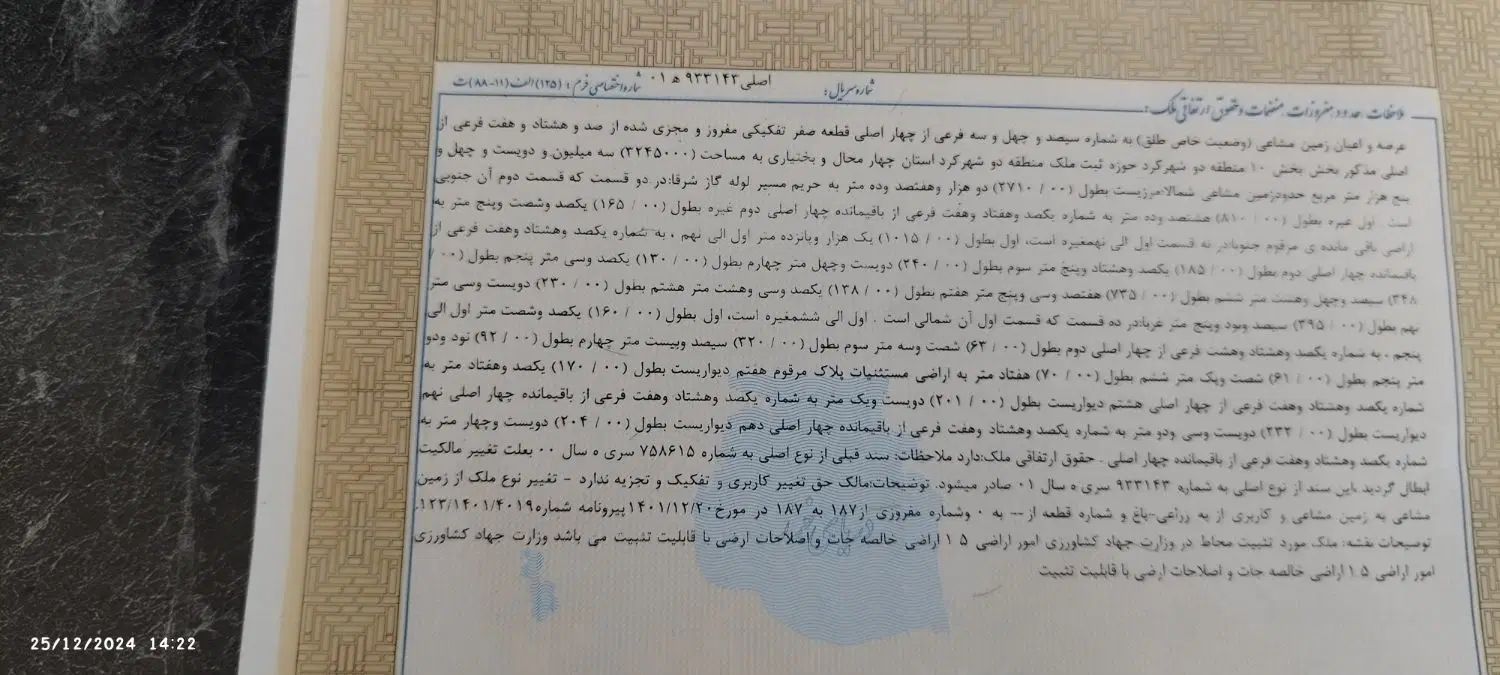 ملاحظات، حدود، مفروزات، منضمات و حقوق ارتفاقی ملک:
شماره سریال:
اصلی ۹۳۳۱۴۳ ه ۰۱
شماره اختصاصی فرم: (۱۲۵)الف(۱۱-۸۸)ت
عرصه و اعیان زمین مشاعی (وضعیت خاص طلق) به شماره سیصد و چهل و سه فرعی از چهار اصلی قطعه صفر تفکیکی مفروز و مجزی شده از صد و هشتاد و هفت فرعی از
اصلی مذکور بخش بخش ۱۰ منطقه دو شهرکرد حوزه ثبت ملک منطقه دو شهرکرد استان چهار محال و بختیاری به مساحت (۳۲۴۵۰۰۰) سه میلیون و دویست و چهل و
پنج هزار متر مربع حدودزمین مشاعی شمالا:مرزیست بطول (۰۰ / ۲۷۱۰) دو هزار وهفتصد وده متر به حریم مسیر لوله گاز شرقا:در دو قسمت که قسمت دوم آن جنوبی
است . اول غیره بطول (۰۰ / ۸۱۰) هشتصد وده متر به شماره یکصد وهفتاد وهفت فرعی از باقیمانده چهار اصلی دوم غیره بطول (۰۰ / ۱۶۵) یکصد وشصت وپنج متر به
اراضی باقی مانده ی مرقوم جنوبا:در نه قسمت اول الی نهمغیره است، اول بطول (۰۰ / ۱۰۱۵) یک هزار وپانزده متر اول الی نهم ، به شماره یکصد وهشتاد وهفت فرعی از
باقیمانده چهار اصلی دوم بطول (۰۰ / ۱۸۵) یکصد وهشتاد وپنج متر سوم بطول (۰۰ / ۲۴۰) دویست وچهل متر چهارم بطول (۰۰ / ۱۳۰) یکصد وسی متر پنجم بطول (۰۰ /
۳۴۸) سیصد وچهل وهشت متر ششم بطول (۰۰ / ۷۳۵) هفتصد وسی وپنج متر هفتم بطول (۰۰ / ۱۳۸) یکصد وسی وهشت متر هشتم بطول (۰۰ / ۲۳۰) دویست وسی متر
نهم بطول (۰۰ / ۳۹۵) سیصد ونود وپنج متر غربا:در ده قسمت که قسمت اول آن شمالی است . اول الی ششمغیره است، اول بطول (۰۰ / ۱۶۰) یکصد وشصت متر اول الی
پنجم ، به شماره یکصد وهشتاد وهشت فرعی از چهار اصلی دوم بطول (۰۰ / ۶۳) شصت وسه متر سوم بطول (۰۰ / ۳۲۰) سیصد وبیست متر چهارم بطول (۰۰ / ۹۲) نود ودو
متر پنجم بطول (۰۰ / ۶۱) شصت ویک متر ششم بطول (۰۰ / ۷۰) هفتاد متر به اراضی مستثنیات پلاک مرقوم هفتم دیواریست بطول (۰۰ / ۱۷۰) یکصد وهفتاد متر به
شماره یکصد وهشتاد وهفت فرعی از چهار اصلی هشتم دیواریست بطول (۰۰ / ۲۰۱) دویست ویک متر به شماره یکصد وهشتاد وهفت فرعی از باقیمانده چهار اصلی نهم
دیواریست بطول (۰۰ / ۲۳۲) دویست وسی ودو متر به شماره یکصد وهشتاد وهفت فرعی از باقیمانده چهار اصلی دهم دیواریست بطول (۰۰ / ۲۰۴) دویست وچهار متر به
شماره یکصد وهشتاد وهفت فرعی از باقیمانده چهار اصلی . حقوق ارتفاقی ملک:دارد ملاحظات: سند قبلی از نوع اصلی به شماره ۷۵۸۶۱۵ سری ه سال ۰۰ بعلت تغییر مالکیت
ابطال گردید ،این سند از نوع اصلی به شماره ۹۳۳۱۴۳ سری ه سال ۰۱ صادر میشود. توضیحات:مالک حق تغییر کاربری و تفکیک و تجزیه ندارد - تغییر نوع ملک از زمین
مشاعی به زمین مشاعی و کاربری از به زراعی-باغ و شماره قطعه از -- به ۰ وشماره مفروزی از۱۸۷ به ۱۸۷ در مورخ۱۴۰۱/۱۲/۲۰پیرونامه شماره۱۲۳/۱۴۰۱/۴۰۱۹.
توضیحات نقشه: ملک مورد تثبیت محاط در وزارت جهاد کشاورزی امور اراضی ۵ ۱ اراضی خالصه جات و اصلاحات ارضی با قابلیت تثبیت می باشد وزارت جهاد کشاورزی
امور اراضی ۵ ۱ اراضی خالصه جات و اصلاحات ارضی با قابلیت تثبیت
25/12/2024 14:22